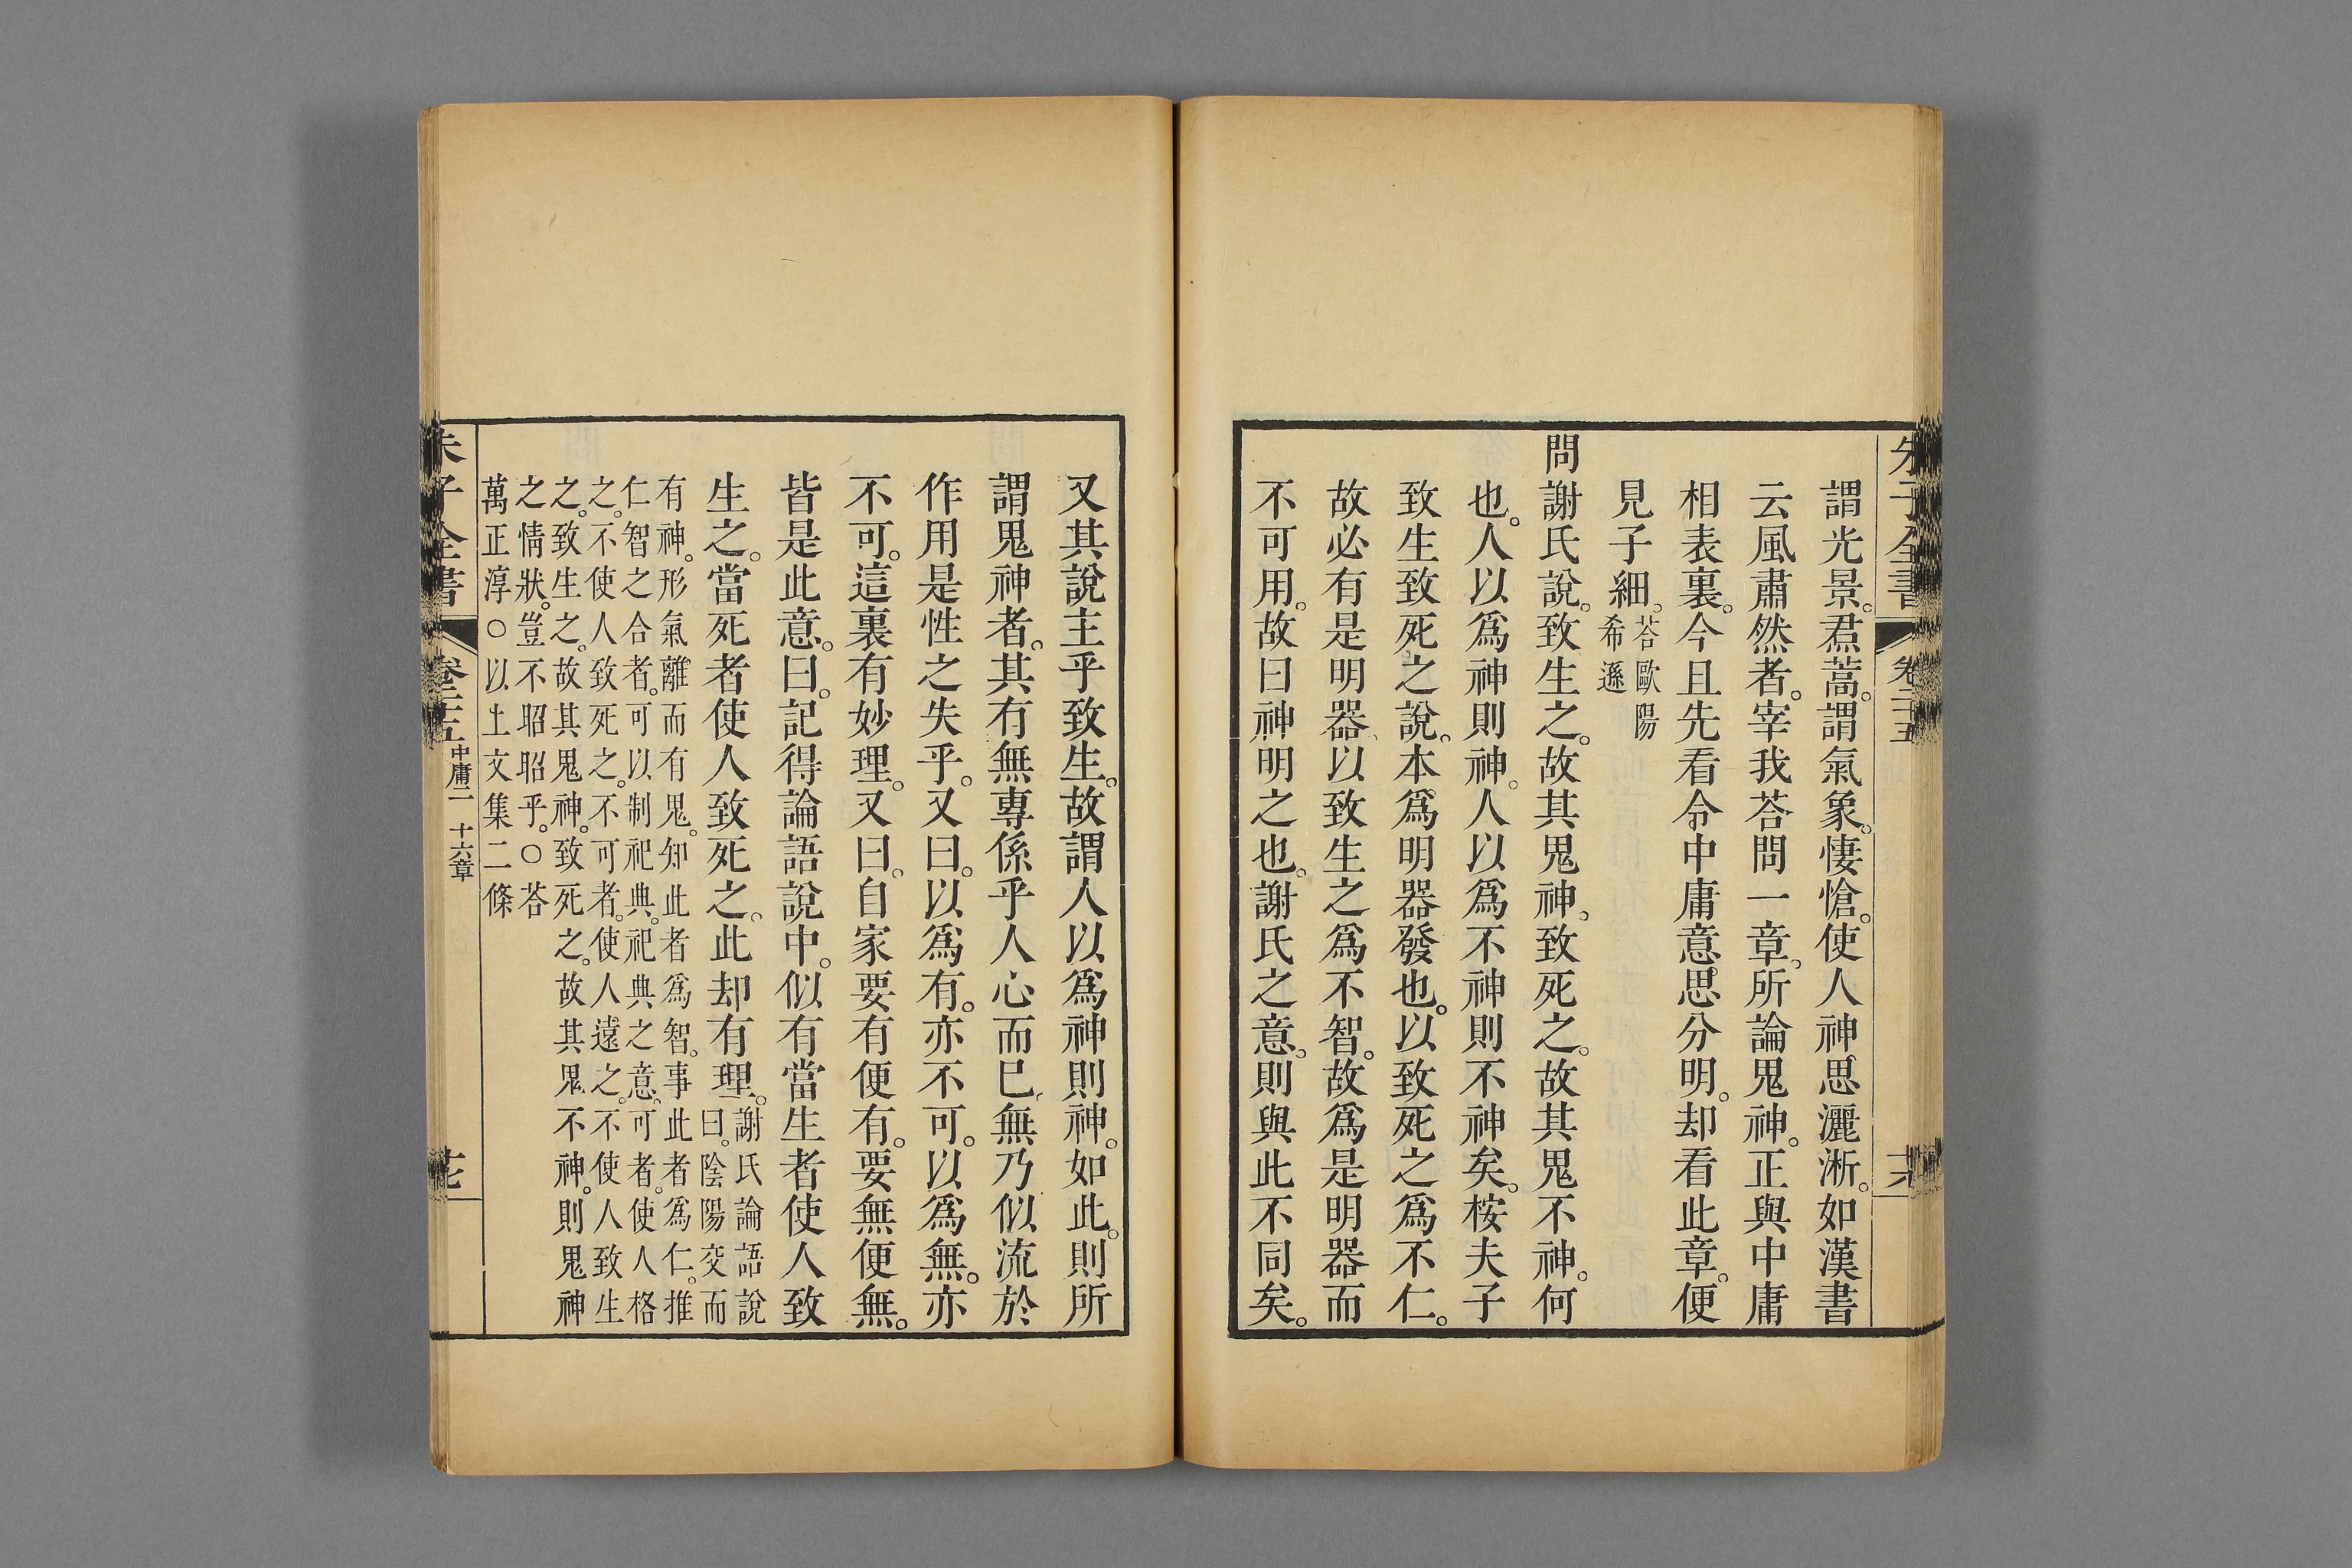 朱子全書
卷二十五
謂光景。焄蒿。謂氣象。悽愴。使人神思灑淅。如漢書
云風肅然者。宰我荅問一章。所論鬼神。正與中庸
相表裏。今且先看令中庸意思分明。却看此章。便
見子細。荅歐陽
希遜
問謝氏說。致生之。故其鬼神。致死之。故其鬼不神。何
也。人以爲神則神。人以爲不神則不神矣。桉夫子
致生致死之說。本爲明器發也。以致死之爲不仁。
故必有是明器、以致生之爲不智。故爲是明器而
不可用。故曰神明之也。謝氏之意。則與此不同矣。
又其說主乎致生。故謂人以爲神則神。如此。則所
謂鬼神者。其有無專係乎人心而已、無乃似流於
作用是性之失乎。又曰。以爲有。亦不可。以爲無。亦
不可。這裏有妙理。又曰。自家要有便有。要無便無。
皆是此意。曰。記得論語說中。似有當生者使人致
生之。當死者使人致死之。此却有理。謝氏論語說
曰。陰陽交而
有神。形氣離而有鬼。知此者爲智。事此者爲仁。推
仁智之合者。可以制祀典。祀典之意。可者。使人格
之。不使人致死之。不可者。使人遠之。不使人致生
之。致生之。故其鬼神。致死之。故其鬼不神。則鬼神
之情狀。豈不昭昭乎。○荅
萬正淳○以上文集二條
朱子全書
卷二十五
中庸二
十六章